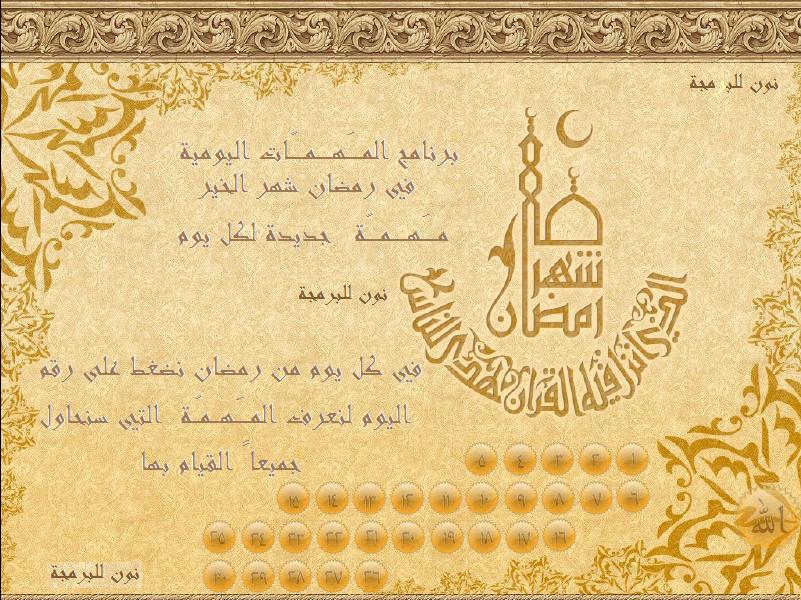 نون للبرمجة
برنامج المَـهـمـّات اليومية
في رمضان شهر الخير
مَـهـمـّة جديدة لكل يوم
نون للبرمجة
شهر
رمضان
الذي أنزل فيه القرآن هدى للناس
في كل يوم من رمضان نضغط على رقم
اليوم لنعرف المَـهـمـّة التي سنحاول
جميعاً القيام بها
١ ٢ ٣ ٤ ٥
٦ ٧ ٨ ٩ ١٠ ١١ ١٢ ١٣ ١٤ ١٥
١٦ ١٧ ١٨ ١٩ ٢٠ ٢١ ٢٢ ٢٣ ٢٤ ٢٥
٢٦ ٢٧ ٢٨ ٢٩ ٣٠
الله
نون للبرمجة